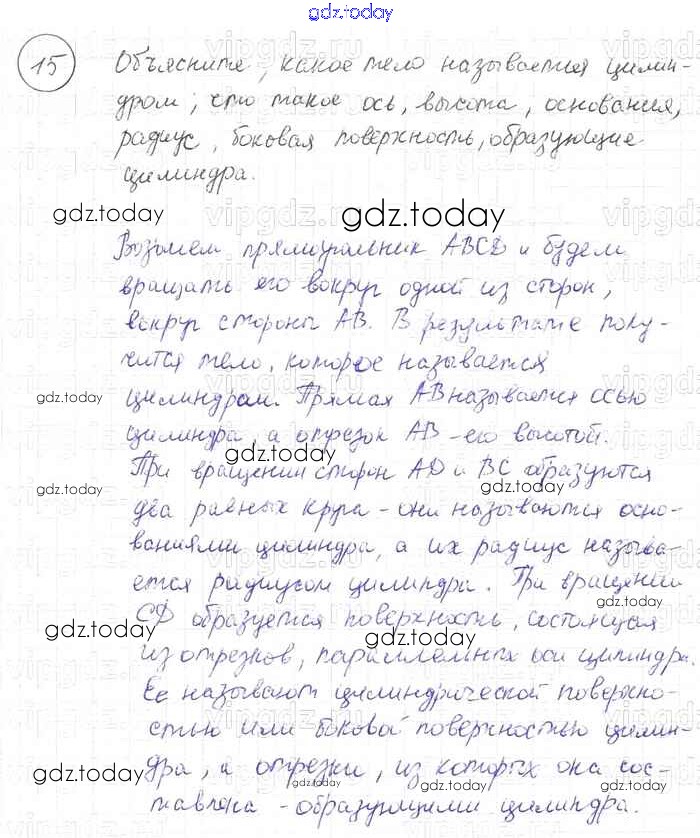 gdz.today
15 Объясните, какое тело называется цилин-
дром; что такое ось, высота, основания,
радиус, боковая поверхность, образующие
цилиндра.
gdz.today gdz.today
Возьмем прямоугольник ABCD и будем
вращать его вокруг одной из сторон,
вокруг стороны AB. В результате полу-
чится тело, которое называется
gdz.today
цилиндром. Прямая AB называется осью
цилиндра, а отрезок AB - его высотой.
gdz.today
При вращении сторон AD и BC образуются
gdz.today gdz.today
два равных круга - они называются осно-
ваниями цилиндра, а их радиус называ-
ется радиусом цилиндра. При вращении
gdz.today
CD образуется поверхность, состоящая
gdz.today gdz.today
из отрезков, параллельных оси цилиндра.
Ее называют цилиндрической поверхно-
стью или боковой поверхностью цилин-
дра, а отрезки, из которых она сос-
gdz.today gdz.today
тавлена - образующими цилиндра.